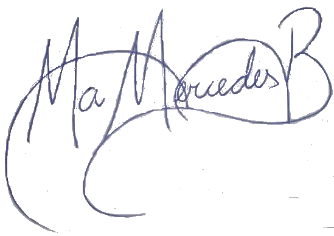 Ma Mercedes B